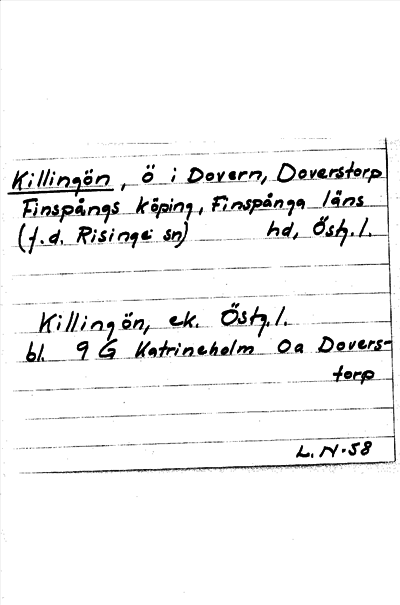 Killingön, ö i Dovern, Doverstorp
Finspångs köping, Finspånga läns
(f.d. Risinge sn) hd, Östg.l.
Killingön, ek. Östg.l.
bl. 9 G Katrineholm Oa Dovers-
torp
L. N-58